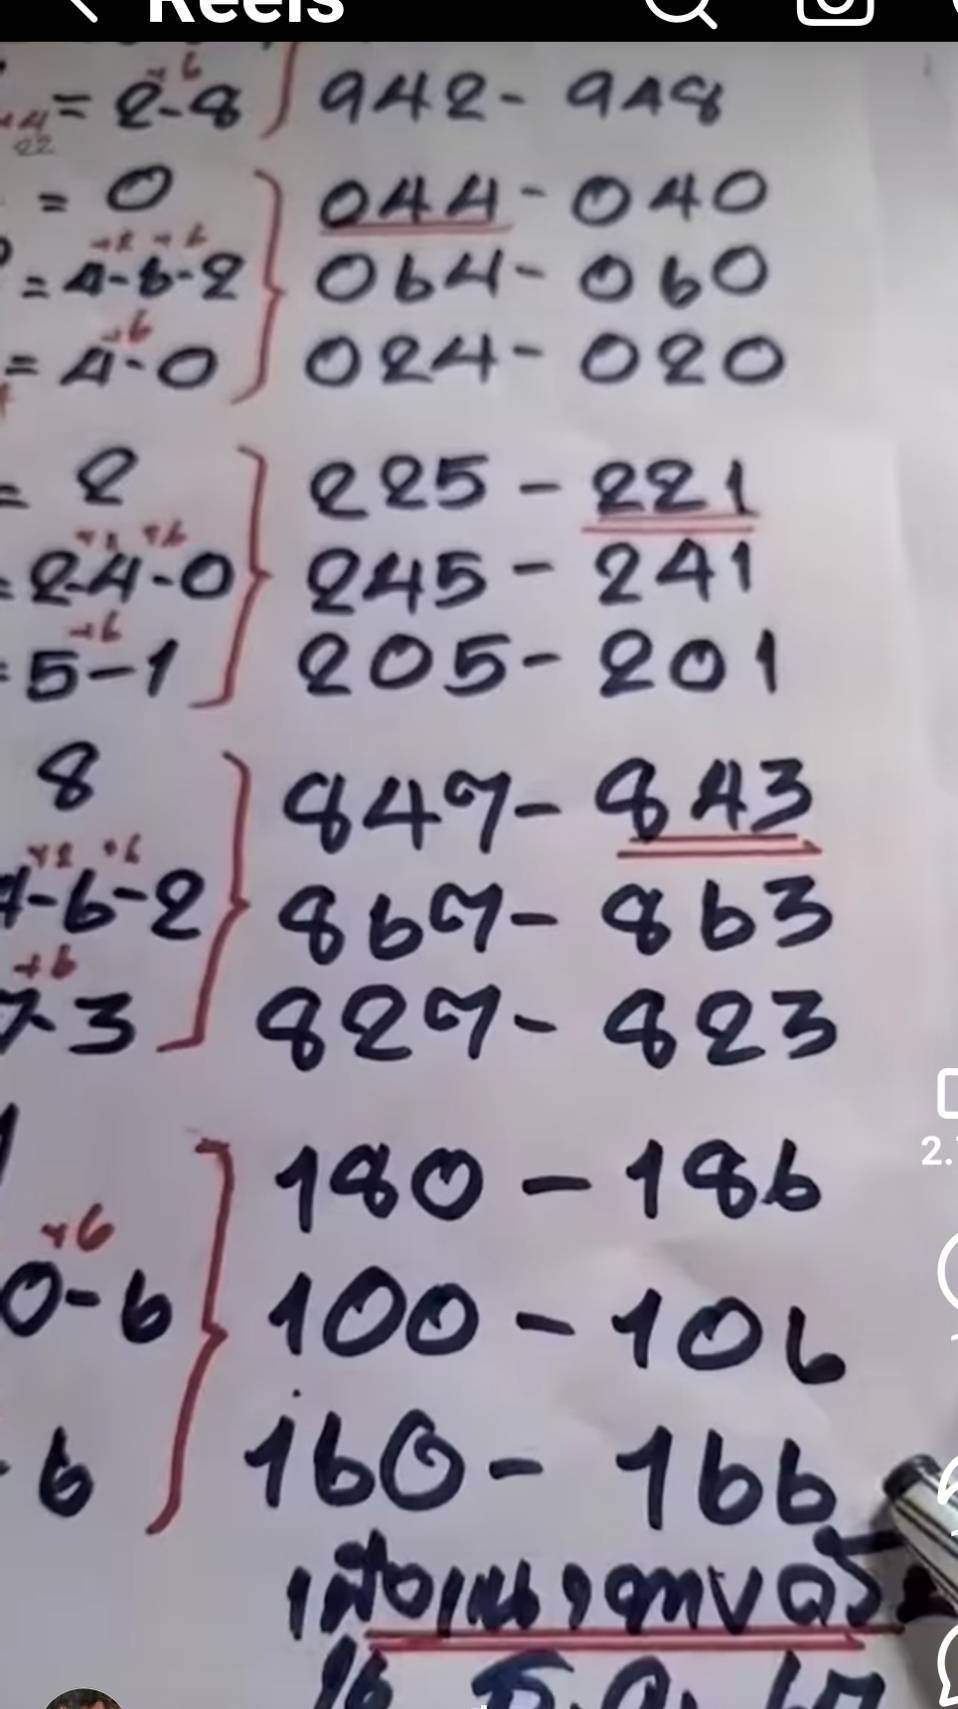 Reels
= 2-8 942 - 948
= 0 044 - 040
+2 +6
= 4-6-2 064 - 060
+6
= 4-0 024 - 020
= 2 225 - 221
+2 +6
= 2-4-0 245 - 241
+6
= 5-1 205 - 201
8 847 - 843
+2 +6
4-6-2 867 - 863
+6
7-3 827 - 823
180 - 186
+6
0-6 100 - 106
6 160 - 166
16 ธ.ค. 67